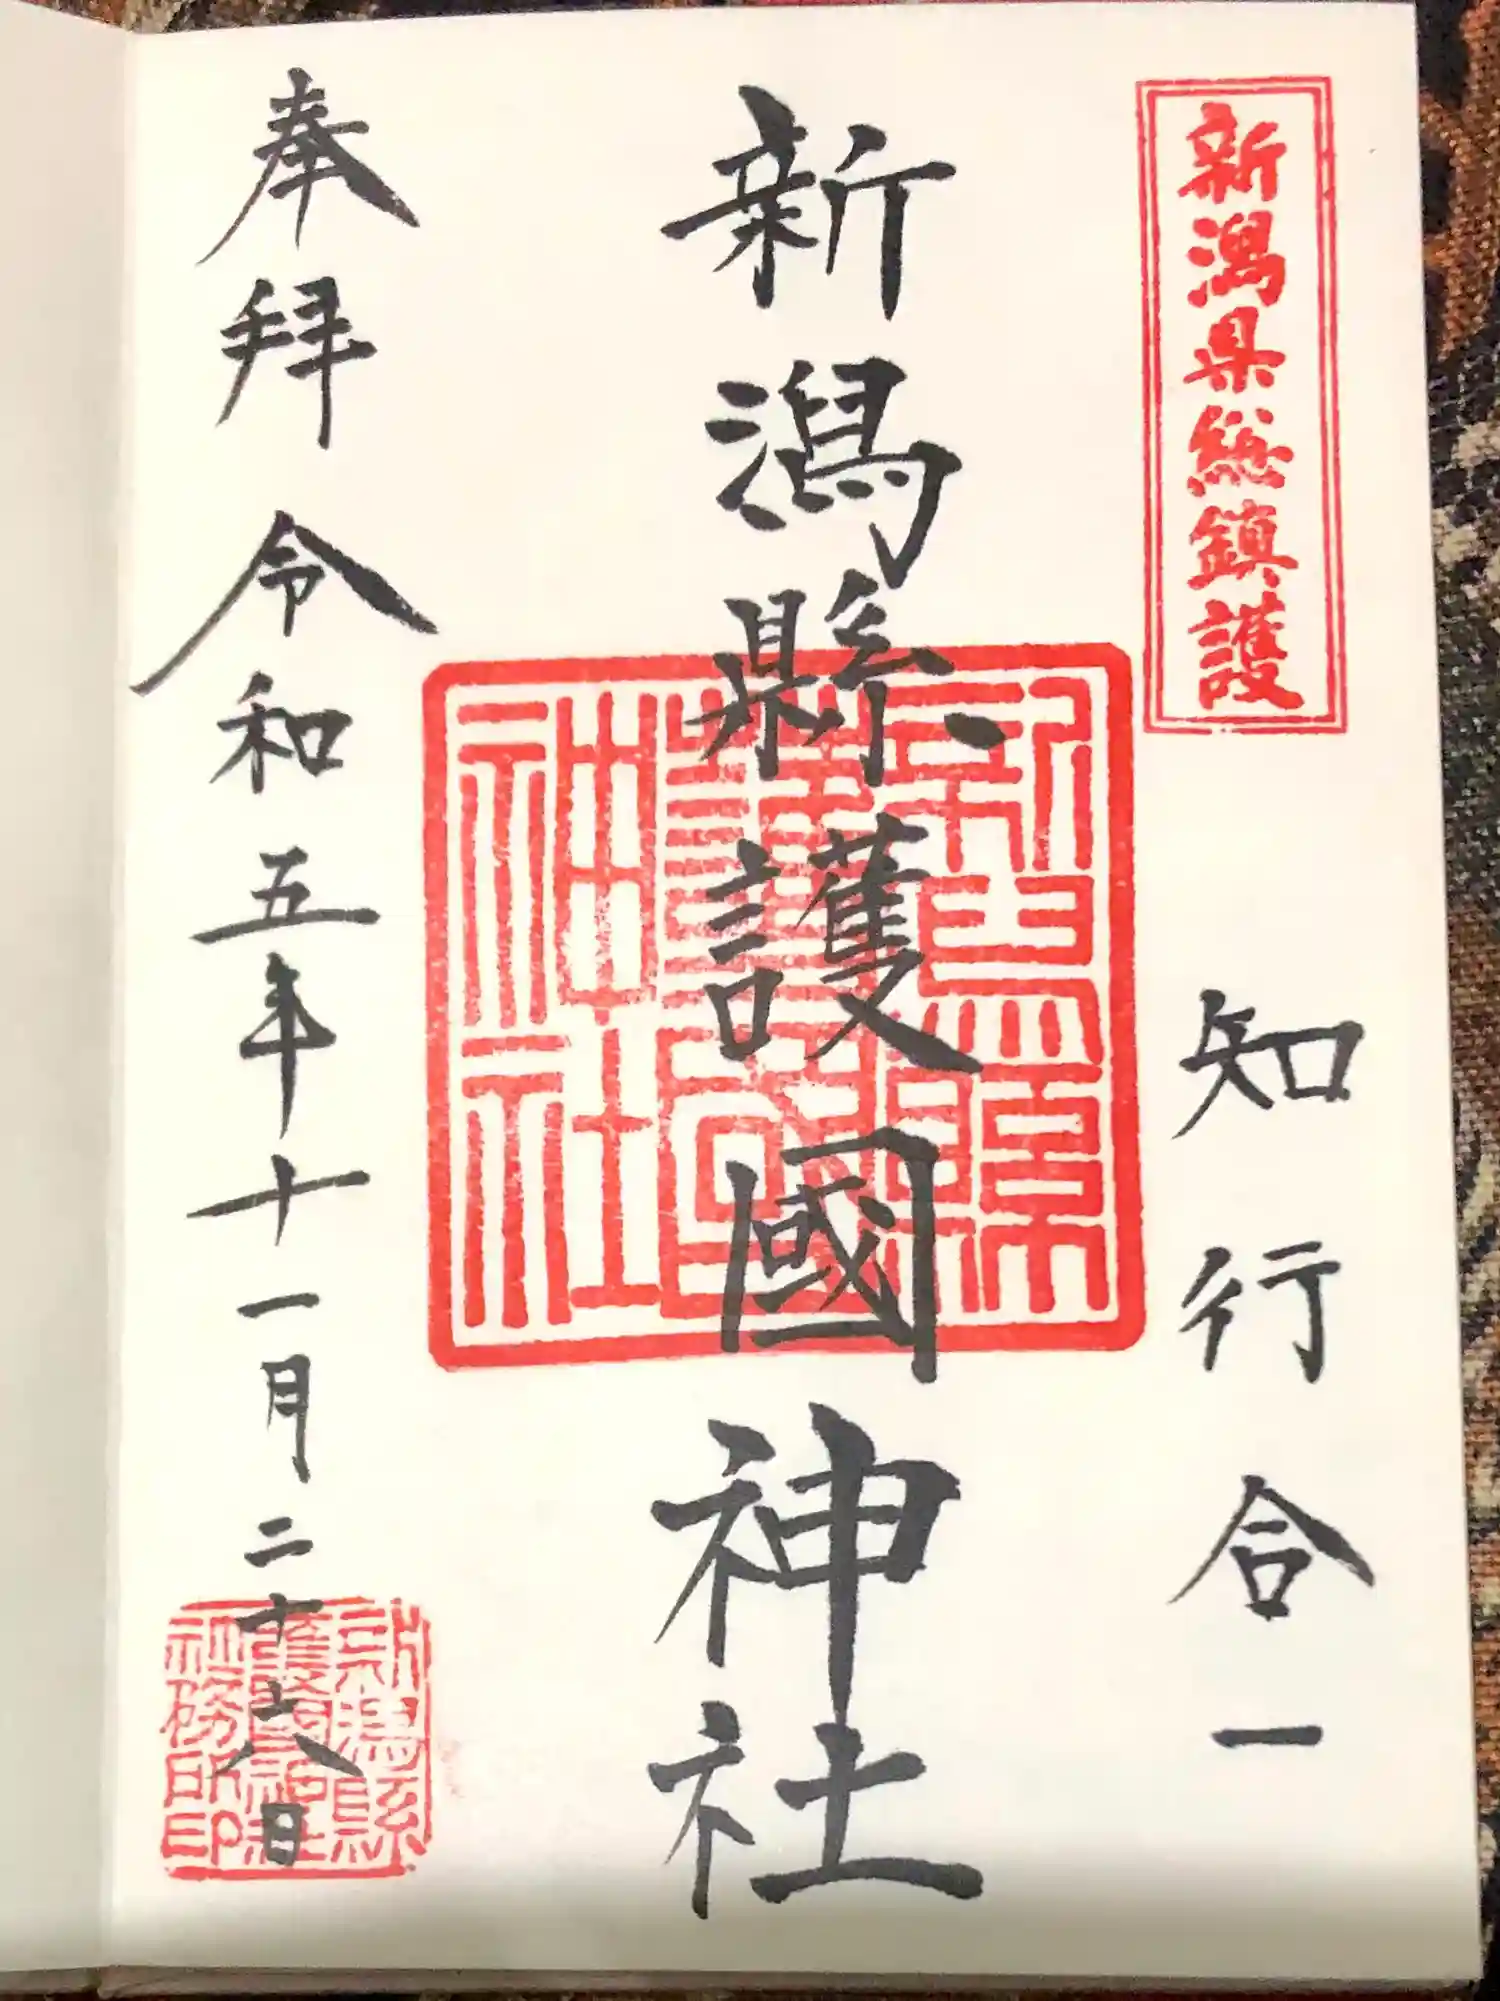 新潟県総鎮護
知行合一
新潟縣護國神社
新潟縣護國神社
奉拜 令和五年十一月二十六日
新潟縣護國神社社務所印